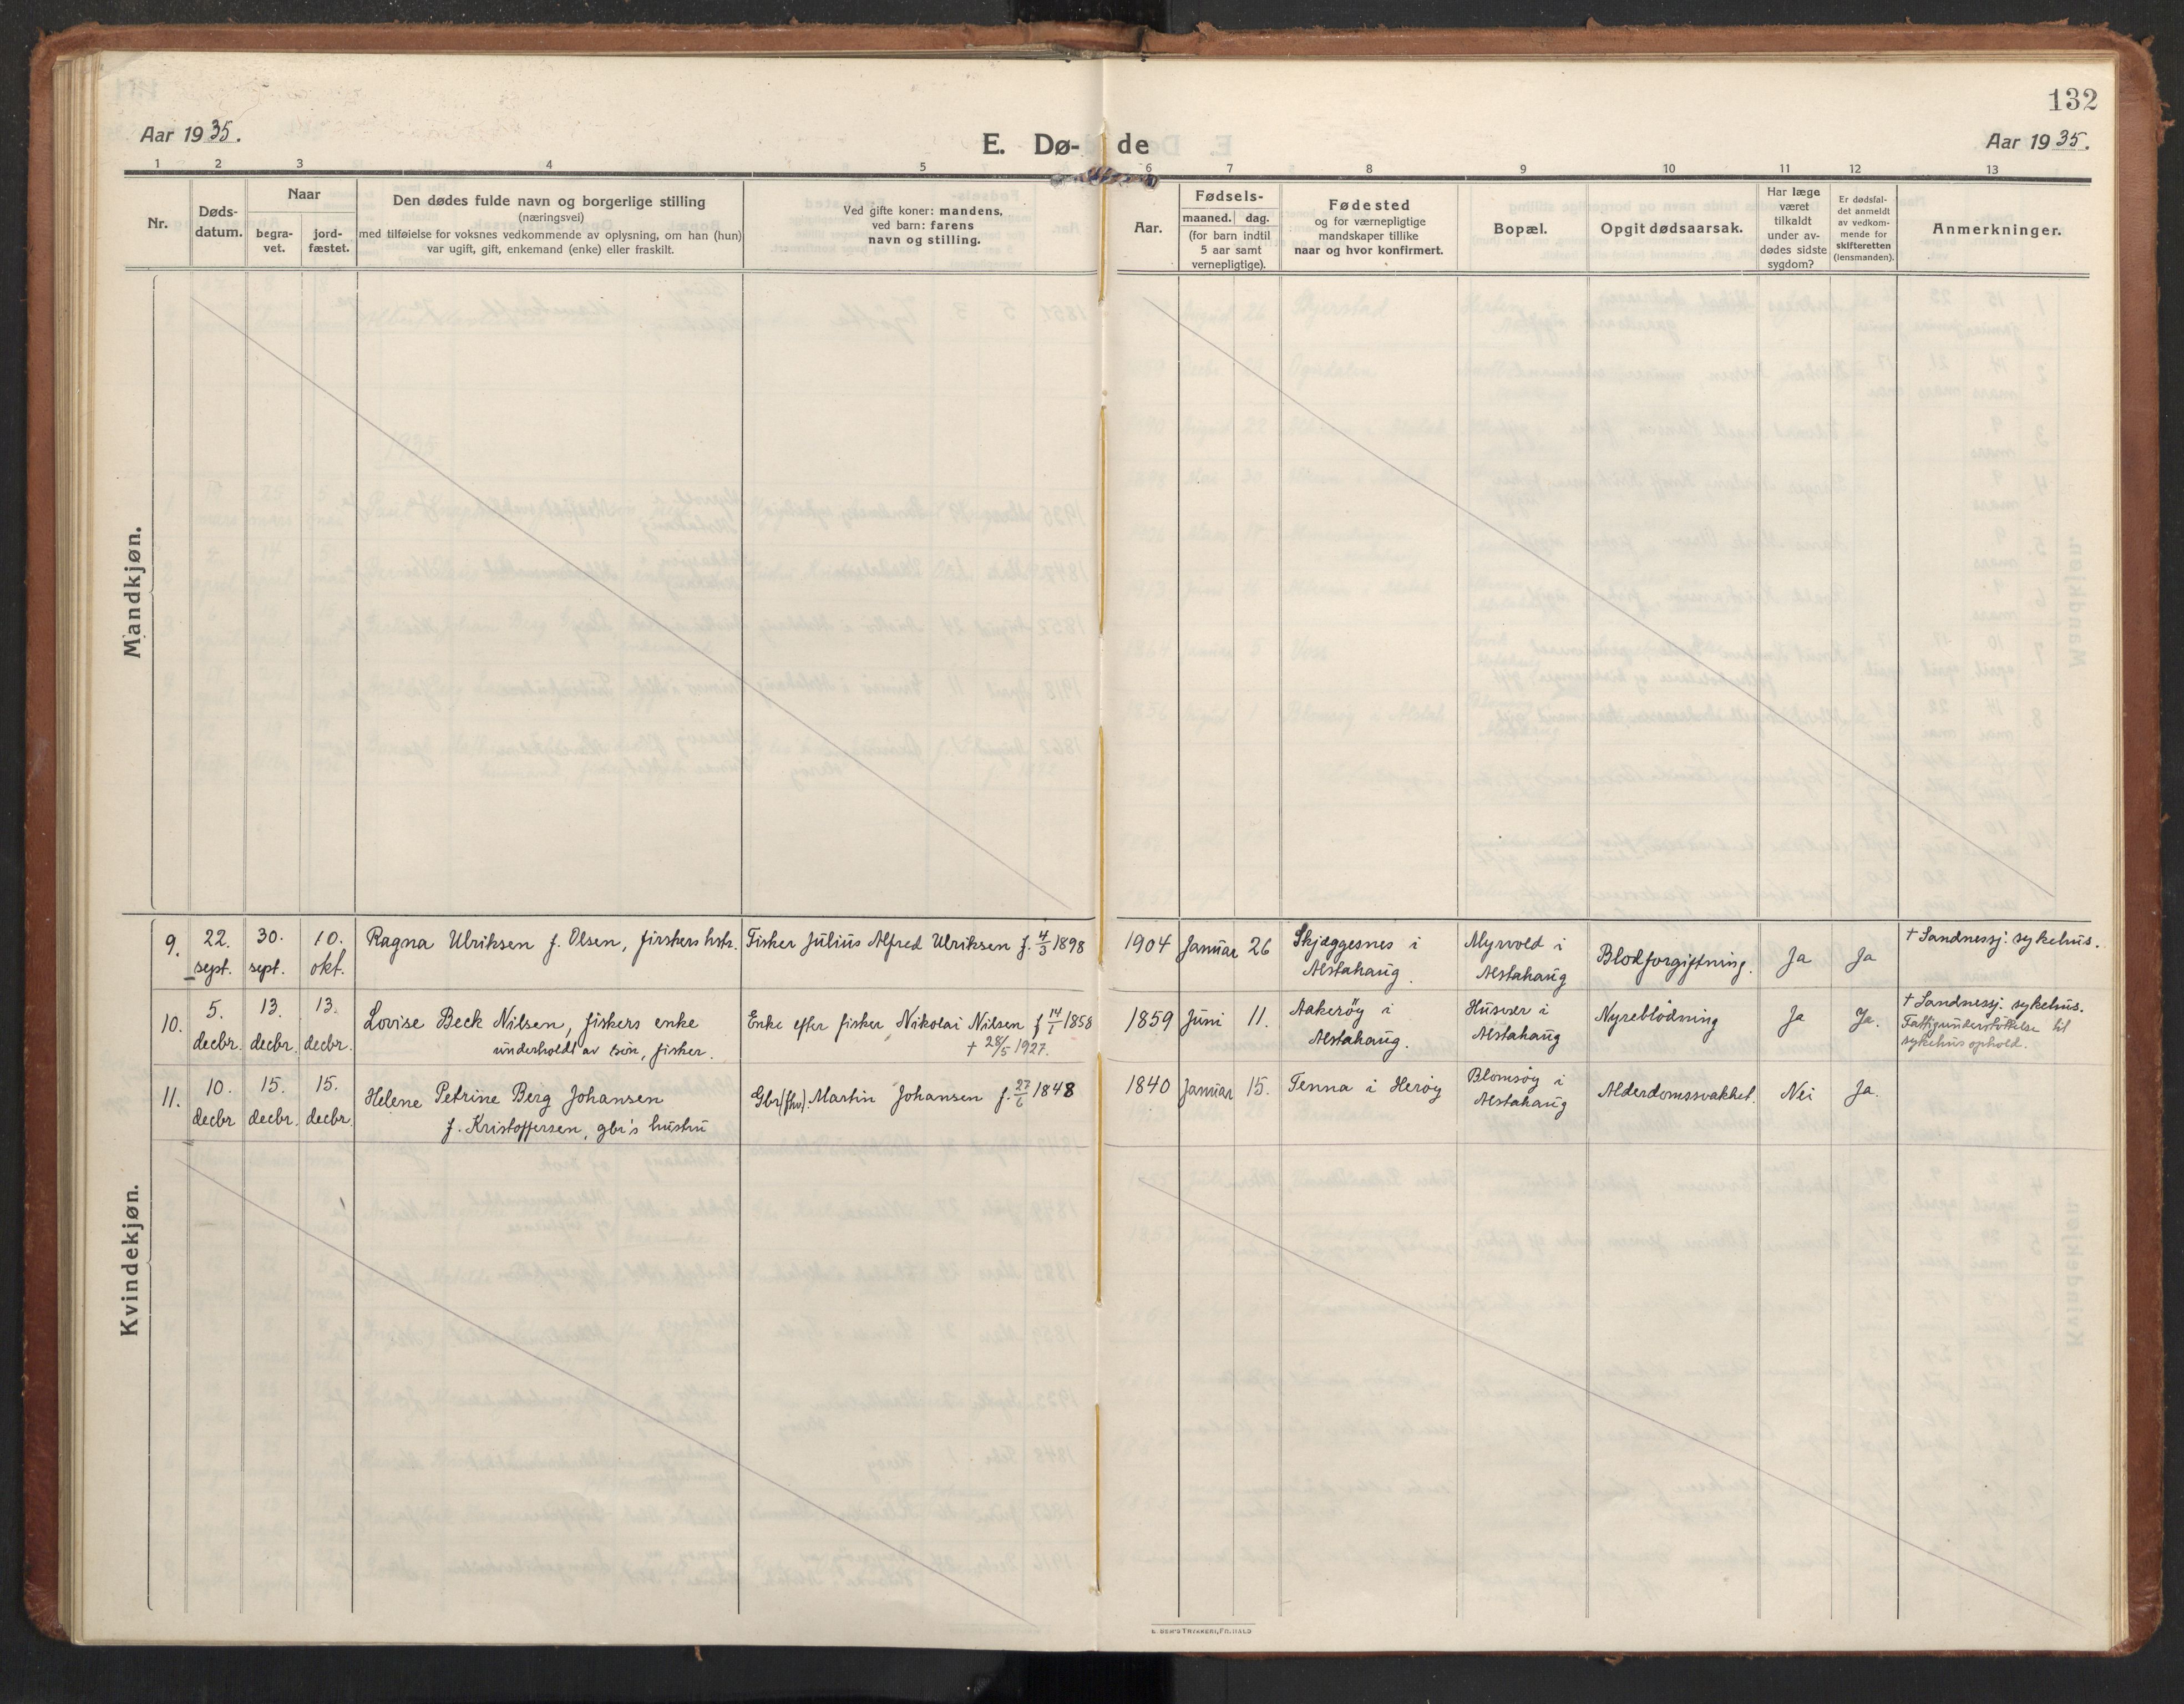 132
Aar 1935.
E. Dø-de
Aar 1935.
1 2 3 4 5 6 7 8 9 10 11 12 13
Nr.
Døds-
datum.
Naar
begra-
vet.
jord-
fæstet.
Den dødes fulde navn og borgerlige stilling
(næringsvei)
med tilføielse for voksnes vedkommende av oplysning, om han (hun)
var ugift, gift, enkemand (enke) eller fraskilt.
Ved gifte koner: mandens,
ved barn: farens
navn og stilling.
Aar.
Fødsels-
maaned. dag.
(for barn indtil
5 aar samt
vernepligtige).
Fødested
og for værnepligtige
mandskaper tillike
naar og hvor konfirmert.
Bopæl.
Opgit dødsaarsak.
Har læge
været
tilkaldt
under av-
dødes sidste
sygdom?
Er dødsfal-
det anmeldt
av vedkom-
mende for
skifteretten
(lensmanden).
Anmerkninger.
Mandkjøn.
Kvindekjøn.
9.
22.
sept.
30.
sept.
10.
okt.
Ragna Ulriksen f. Olsen, firskers hstr.
Fisker Julius Alfred Ulriksen f. 4/3 1898
1904
Januar
26
Skjæggesnes i
Alstahaug.
Myrvold i
Alstahaug
Blodforgiftning.
Ja
Ja
† Sandnessj. sykehus.
10.
5.
decbr.
13.
decbr.
13.
decbr.
Lovise Beck Nilsen, fiskers enke
underholdt av søn, fisker.
Enke efter fisker Nikolai Nilsen f 14/1 1858
† 28/5 1927.
1859
Juni
11.
Aakerøy i
Alstahaug.
Husvær i
Alstahaug
Nyreblödning
Ja
Ja.
† Sandnessj. sykehus.
Fattigunderstöttelse til
sykehusophold.
11.
10.
decbr
15.
decbr.
15.
decbr.
Helene Petrine Berg Johansen
f. Kristoffersen, gbr's hustru
Gbr(fhv). Martin Johansen f. 27/6 1848
1840
Januar
15.
Tenna i Herøy
Blomsøy i
Alstahaug
Alderdomssvakhet.
Nei
Ja.